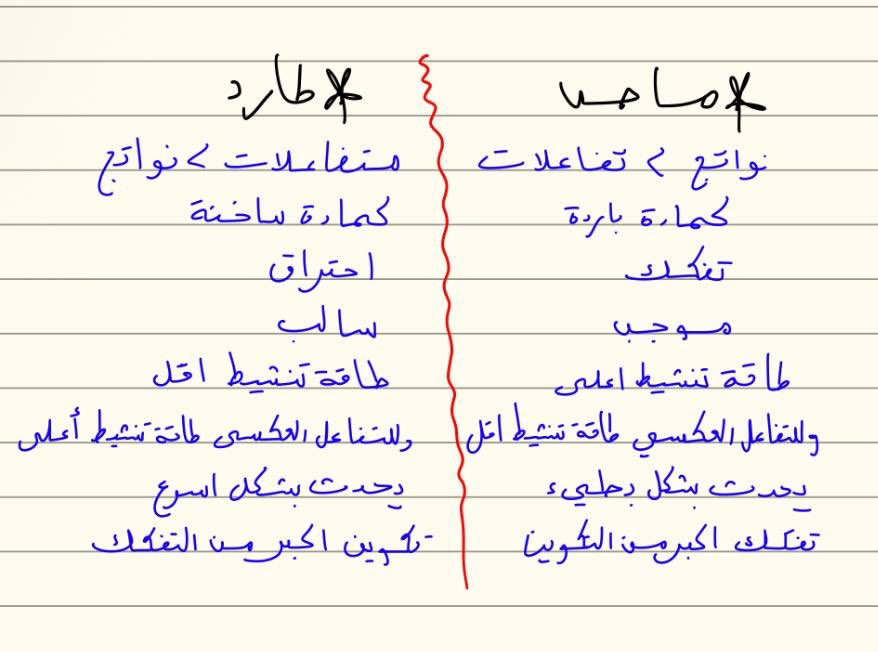 *ماص
نواتج > تفاعلات
كمادة باردة
تفكك
موجب
طاقة تنشيط اعلى
وللتفاعل العكسي طاقة تنشيط اقل
يحدث بشكل بطيء
تفكك اكبر من التكوين
*طارد
متفاعلات > نواتج
كمادة ساخنة
احتراق
سالب
طاقة تنشيط اقل
وللتفاعل العكسي طاقة تنشيط أعلى
يحدث بشكل اسرع
تكوين اكبر من التفكك